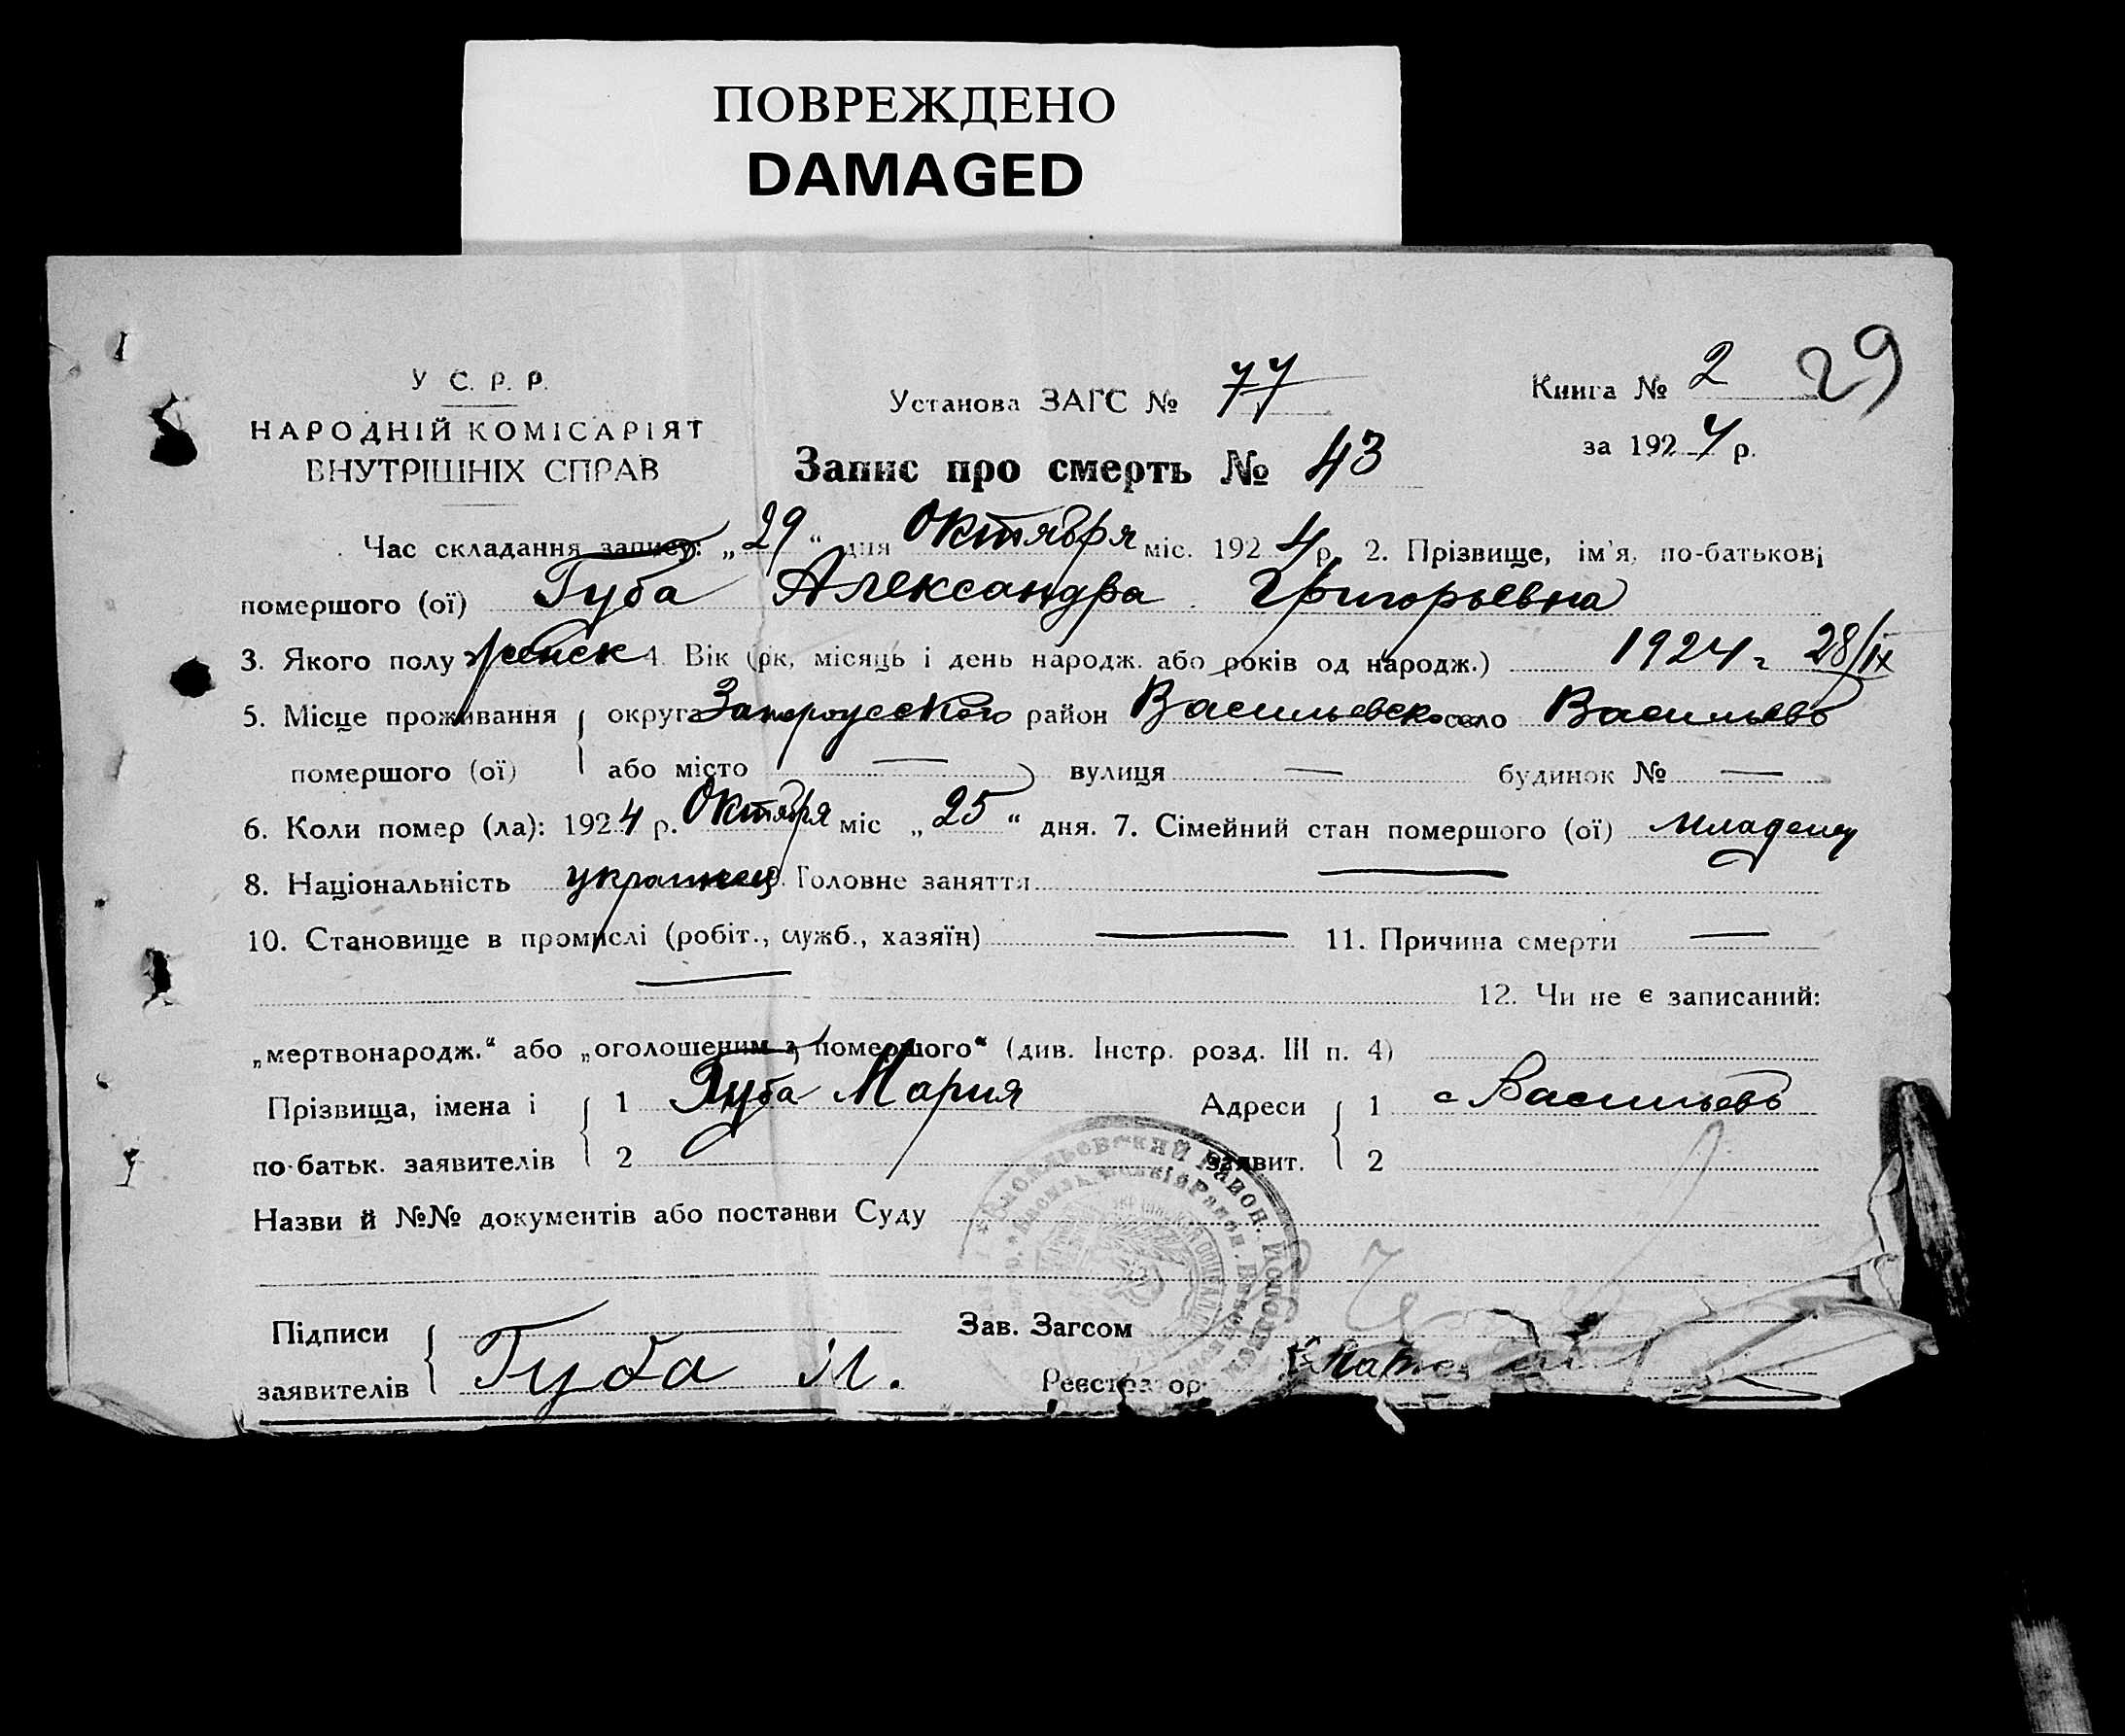 ПОВРЕЖДЕНО
DAMAGED
У С. Р. Р.
НАРОДНІЙ КОМІСАРІЯТ
ВНУТРІШНІХ СПРАВ
Установа ЗАГС № 77
Книга № 2 29
за 1924 р.
Запис про смерть № 43
Час складання запису: „29“ дня Октября міс. 1924 р. 2. Прізвище, ім'я, по-батькові
помершого (ої) Губа Александра Григорьевна
3. Якого полу женск 4. Вік (рік, місяць і день народж. або років од народж.) 1924 г 28/IX
5. Місце проживання { округа район Васильевско село Васильевъ
помершого (ої) або місто — вулиця — будинок № —
6. Коли помер (ла): 1924 р. Октября міс „25“ дня. 7. Сімейний стан помершого (ої) младенец
8. Національність украинец 9. Головне заняття —
10. Становище в промислі (робіт., служб., хазяїн) — 11. Причина смерти —
— 12. Чи не є записаний:
„мертвонародж.“ або „оголошеним з помершого“ (див. Інстр. розд. III п. 4)
Прізвища, імена і { 1 Губа Мария Адреси { 1 с Васильевъ
по-батьк. заявителів 2 заявит. 2
Назви й №№ документів або постанви Суду
Підписи { Зав. Загсом
заявителів Губа М. Реєстратор